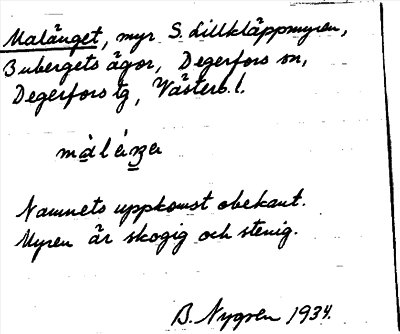 Malånget, myr S. Lillkläppmyren,
Bubergets ägor, Degerfors sn,
Degerfors tg, Västerb. l.
Namnets uppkomst obekant.
Myren är skogig och stenig.
B. Nygren 1934.